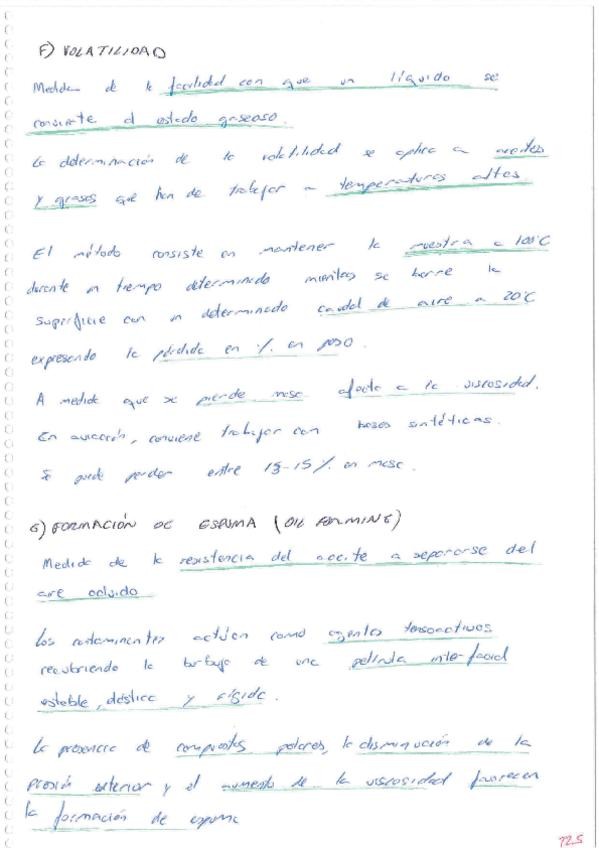 F) VOLATILIDAD
Medida de la facilidad con que un líquido se
convierte al estado gaseoso.
La determinación de la volatilidad se aplica a aceites
y grasas que han de trabajar a temperaturas altas.
El método consiste en mantener la muestra a 100°C
durante un tiempo determinado mientras se barre la
superficie con un determinado caudal de aire a 20°C
expresando la pérdida en % en peso.
A medida que se pierde masa afecta a la viscosidad.
En aviación, conviene trabajar con bases sintéticas.
Se puede perder entre 13-15% en masa.
G) FORMACIÓN DE ESPUMA (OIL FORMING)
Medida de la resistencia del aceite a separarse del
aire ocluido
Los contaminantes actúan como agentes tensoactivos
recubriendo la burbuja de una película interfacial
estable, elástica y rígida.
La presencia de compuestos polares, la disminución de la
presión exterior y el aumento de la viscosidad favorecen
la formación de espuma
72.5